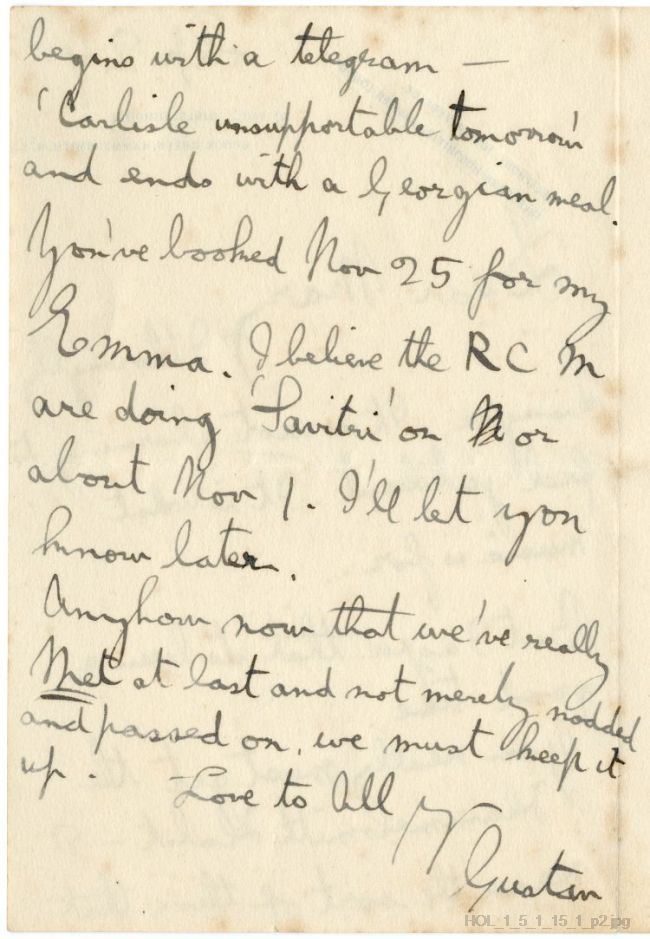 begins with a telegram —
'Carlisle unsupportable tomorrow'
and ends with a Georgian meal.
You've booked Nov 25 for my
Emma. I believe the RCM
are doing 'Savitri' on or
about Nov 1. I'll let you
know later.
Anyhow now that we've really
Met at last and not merely nodded
and passed on, we must keep it
up. Love to All
Y
Gustav
HOL_1_5_1_15_1_p2.jpg